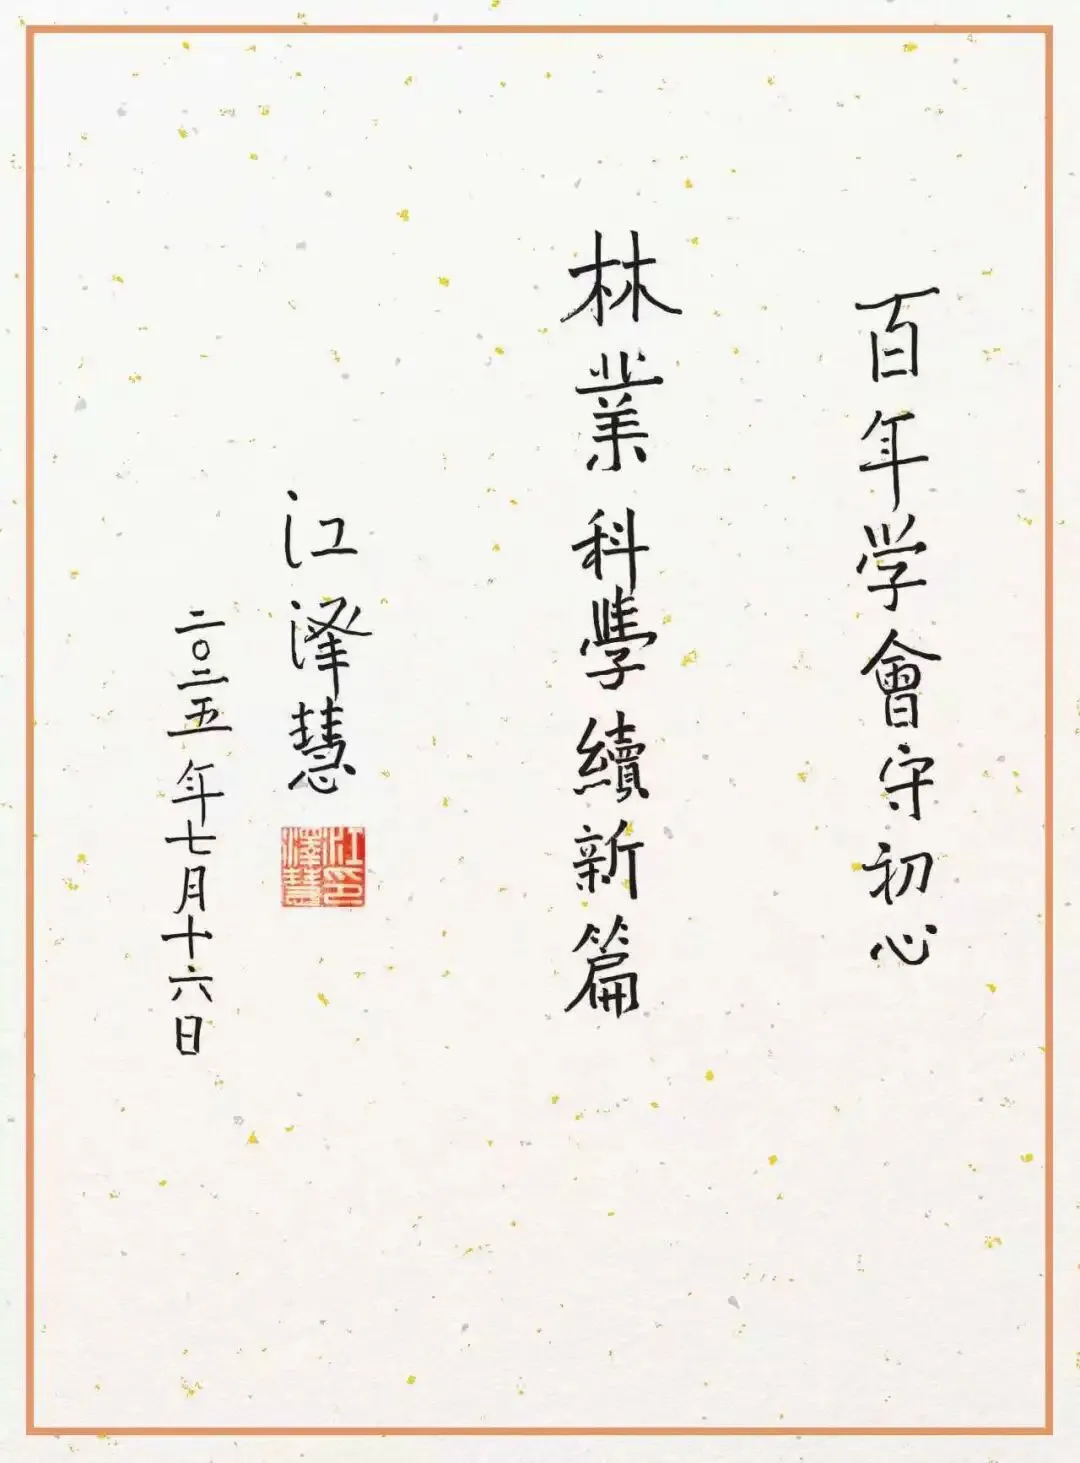 百年学會守初心
林業科學續新篇
江泽慧
江澤慧印
二〇二五年七月十六日